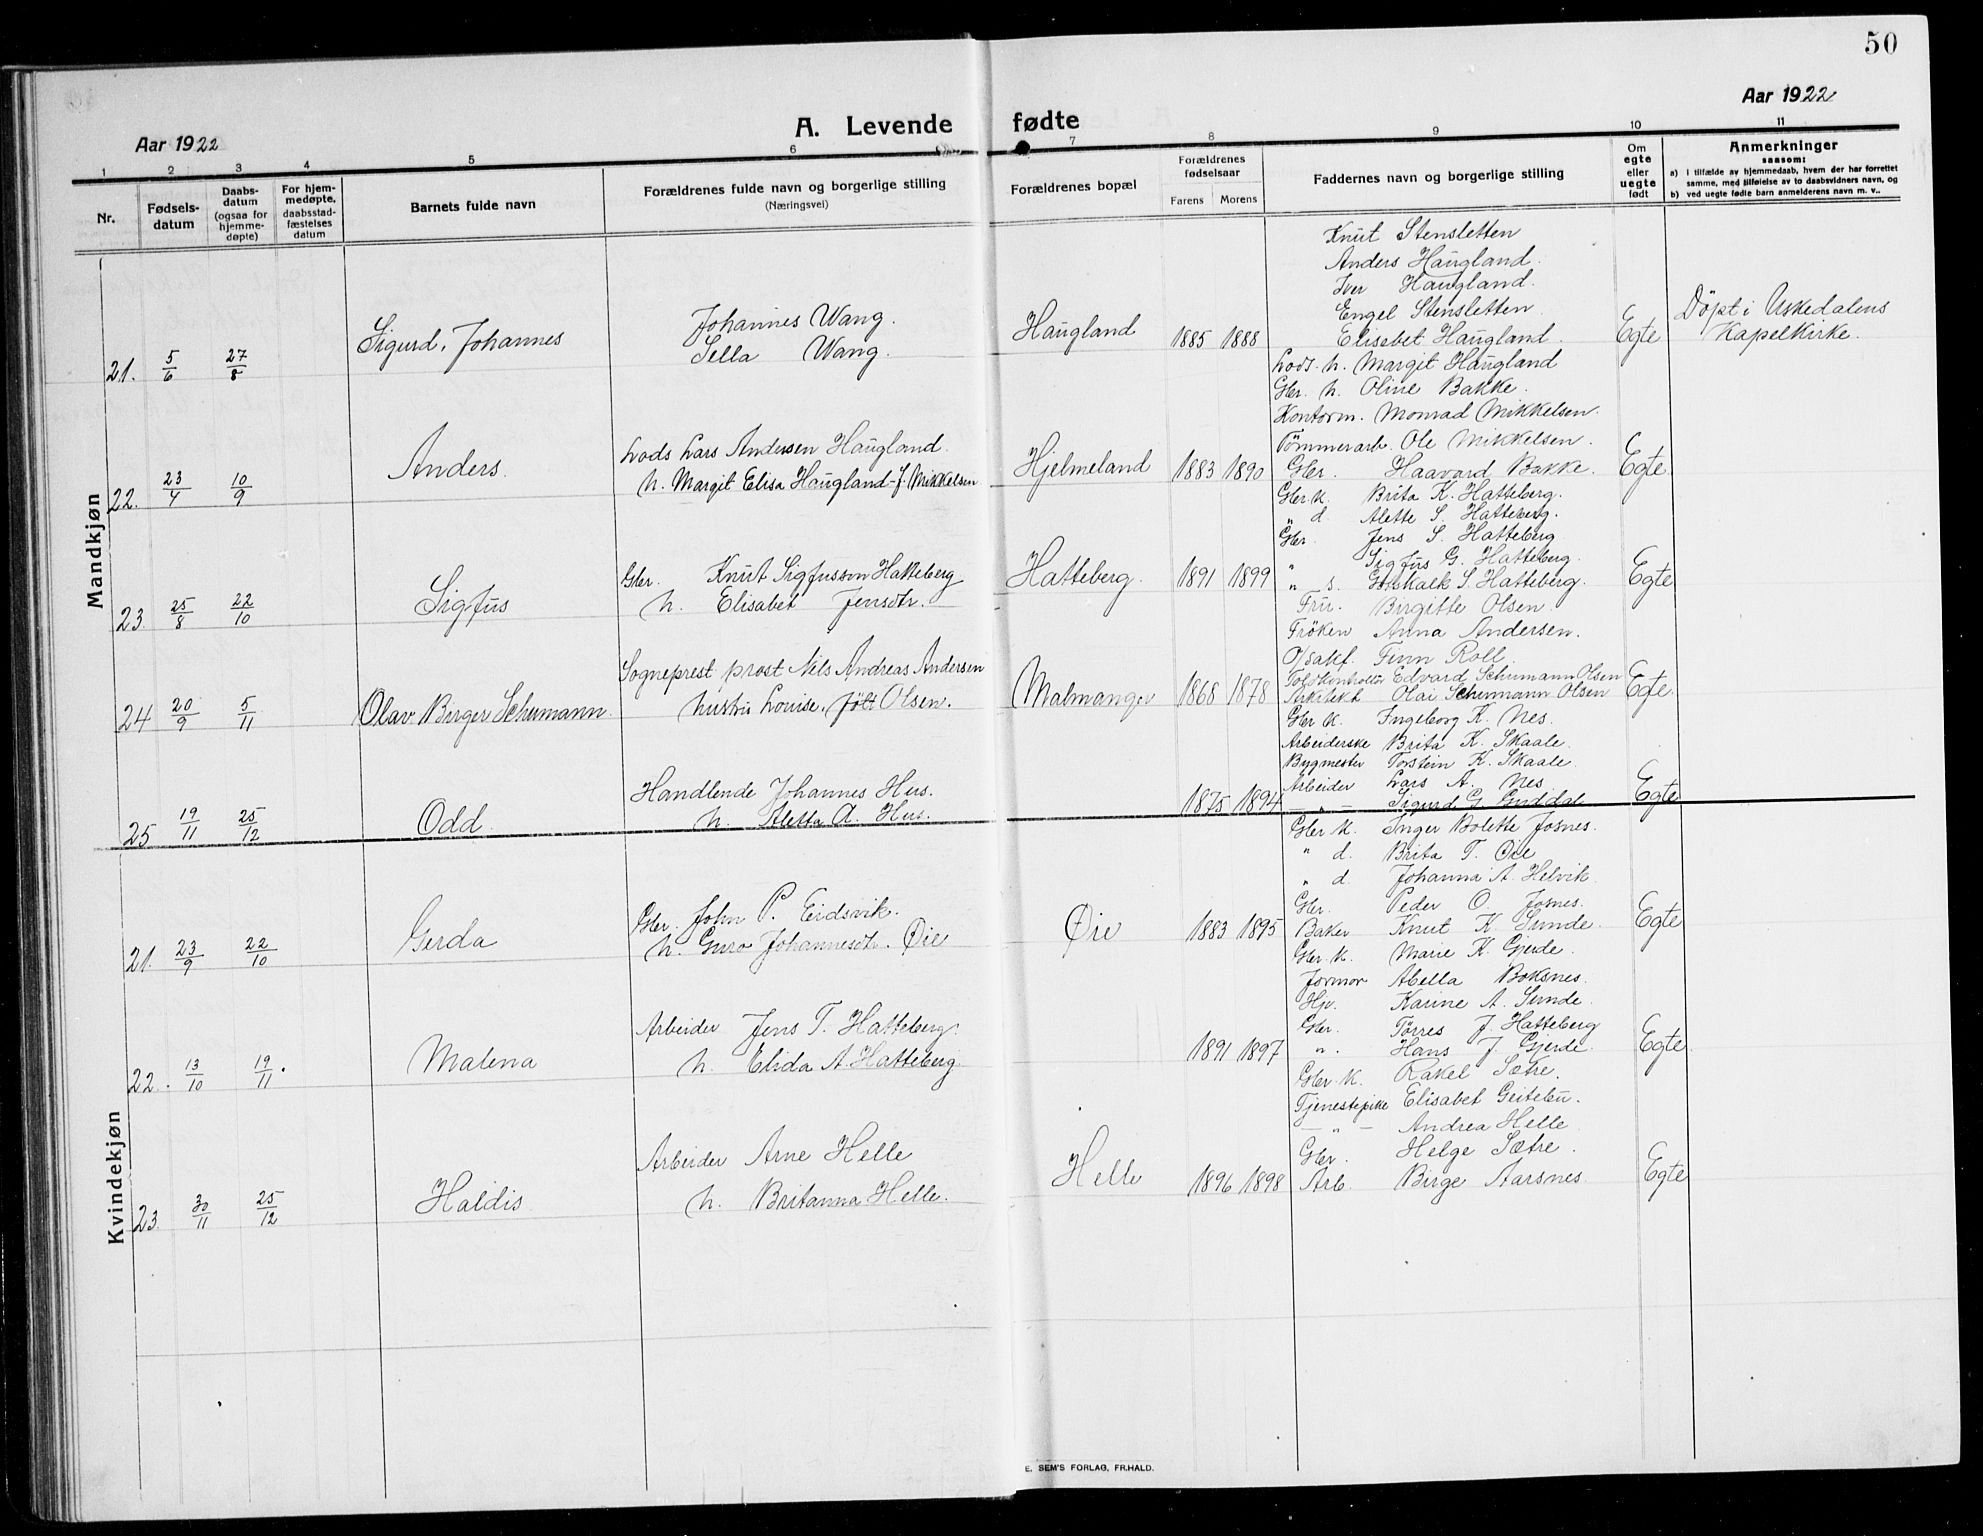 50
Aar 1922
A. Levende fødte
Aar 1922
1 2 3 4 5 6 7 8 9 10 11
Nr.
Fødsels-
datum
Daabs-
datum
(ogsaa for
hjemme-
døpte)
For hjem-
medøpte,
daabsstad-
fæstelses
datum
Barnets fulde navn
Forældrenes fulde navn og borgerlige stilling
(Næringsvei)
Forældrenes bopæl
Forældrenes
fødselsaar
Farens Morens
Faddernes navn og borgerlige stilling
Om
egte
eller
uegte
født
Anmerkninger
saasom:
a) i tilfælde av hjemmedaab, hvem der har forrettet
samme, med tilføielse av to daabsvidners navn, og
b) ved uegte fødte barn anmelderens navn m. v..
Mandkjøn
21. 5/6 27/8 Sigurd, Johannes
Johannes Wang.
Sella Wang.
Haugland 1885 1888
Knut Stensletten
Anders Haugland.
Iver Haugland.
Engel Stensletten.
Elisabet Haugland.
Egte
Døpt i Uskedalens
Kapelkirke.
22. 23/4 10/9 Anders.
Lods Lars Andersen Haugland.
h. Margit Elisa Haugland f. Mikkelsen
Hjelmeland 1883 1890
Lods. h. Margit Haugland
Gbr. h. Oline Bakke.
Kontorm. Monrad Mikkelsen.
Tømmerarb. Ole Mikkelsen.
Gbr. Haavard Bakke.
Egte
23. 25/8 22/10 Sigfus
Gbr. Knut Sigfusson Hatteberg
h. Elisabet Jensdtr.
Hatteberg. 1891 1899
Gbr. k. Brita K. Hatteberg.
" d. Alette S. Hatteberg.
Gbr. Jens S. Hatteberg
" Sigfus G. Hatteberg.
" s. Gotskalk S. Hatteberg.
Egte
24 20/9 5/11 Olav Birger Schumann.
Sogneprest prost Nils Andreas Andersen
hustru Louise, født Olsen.
Malmanger 1868 1878
Fru. Birgitte Olsen.
Frøken Anna Andersen.
O/sakf. Finn Roll.
Toldkontrollør Edvard Schumann Olsen
Arkitekt Olai Schumann Olsen
Egte.
25 19/11 25/12 Odd.
Handlende Johannes Hus.
h. Aletta A. Hus.
1875 1894
Gbr k. Ingeborg K. Nes.
Arbeiderske Brita K. Skaale.
Bygmester Torstein K. Skaale.
Arbeider Lars A. Nes
— " — Sigurd G. Guddal
Egte
Kvindekjøn
21. 23/9 22/10 Gerda
Gbr. John P. Eidsvik.
h. Guro Johannesdtr. Øie
Øie 1883 1895
Gbr k. Inger Bolette Josnes.
" d. Brita T. Øie
" d. Johanna A. Helvik.
Gbr. Peder O. Josnes.
Baker Knut K. Sunde.
Egte
22. 13/10 19/11. Malena
Arbeider Jens T. Hatteberg.
h. Elida A. Hatteberg.
1891 1897
Gbr. k. Marie K. Gjerde.
Jormor Abella Boksnes.
Hjv. Karine A. Sunde.
Gbr. Tørres J. Hatteberg
" . Hans J. Gjerde.
Egte
23. 30/11 25/12 Haldis.
Arbeider Arne Helle
h. Britanna Helle.
Helle 1896 1898
Gbr. k. Rakel Sætre.
Tjenestepike Elisabet Geitebu.
— " — Andrea Helle
Gbr. Helge Sætre.
Arb. Birge Aarsnes.
Egte
E. SEM'S FORLAG, FR.HALD.